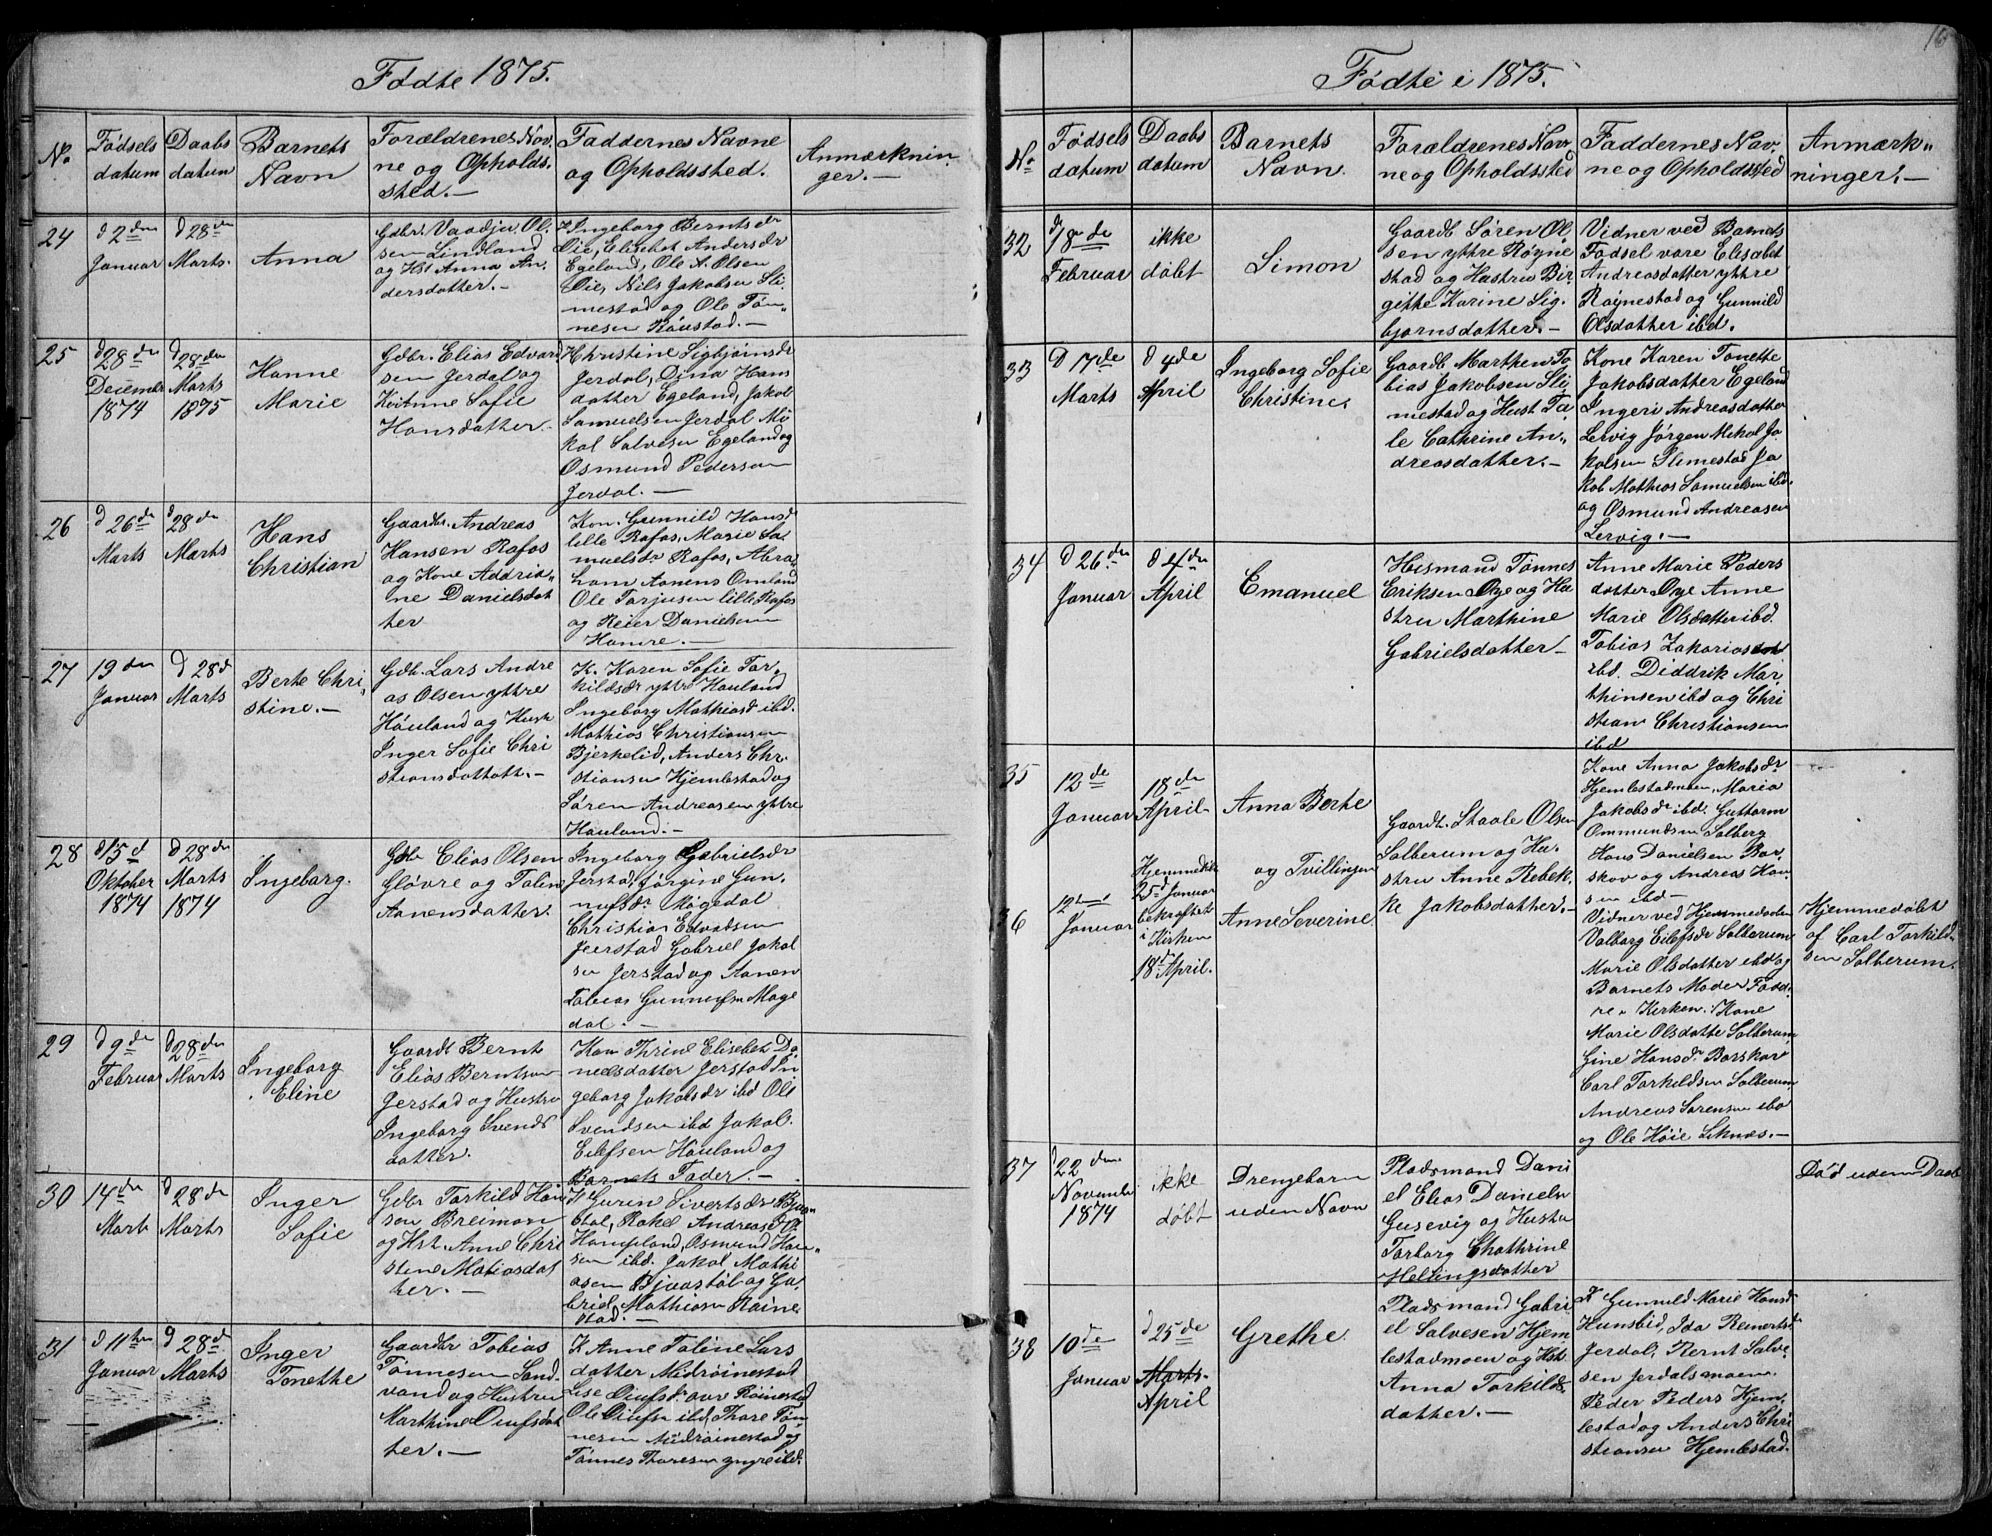 Fødte 1875.
No
Fødsels
datum
Daabs
datum
Barnets
Navn
Forældrenes Nav,
ne og Opholds,
sted.—
Faddernes Navne
og Opholdssted.
Anmærknin
ger.—
24
d 2den
Januar
d 28de
Marts.
Anna
Gdbr. Vaadja Ol,
sen Lindland
og Hst Anna An,
dersdatter.—
K Ingeborg Berntsdr
Øie, Elisabet Andersdr
Egeland, Ole A. Olsen
Øie, Nils Jakobsen Sli,
mestad og Ole Tøn,
nesen Røiestad.—
25
d 28de
Decembr
1874
d 28de
Marts
1875
Hanne
Marie
Gdbr. Elias Edvard
sen Jerdal og
Anne Sofie
Hansdatter.
Christine Sigbjørnsdr
Jerdal, Dina Hans
datter Egeland, Jakob
Samuelsen Jerdal Mi
kal Salvesen Egeland og
Osmund Pedersen
Jerdal.—
26
d 26de
Marts
d 28de
Marts
Hans
Christian
Gaardbr. Andreas
Hansen Rafos
og Kone Addria,,
ne Danielsdat
ter
Kon. Gunnild Hansdr
lille Rafos, Marie Sa,
muelsdr Rafos, Abra,
ham Aanens Omland
Ole Tarjusen lille Rafos
og Reier Danielsen
Hamre.—
27
19den
Januar
d 28de
Marts
Berte Chri,
stine.—
Gdb. Lars Andre
as Olsen yttre
Houland og Hust
Inger Sofie Chri
stiansdatter.—
K. Karen Sofie Tor,
kildsdr yttre Houland
Ingeborg Mathiasd ibd.
Mathias Christiansen
Bjerkelid, Anders Chr.
stiansen Hjemlestad og
Søren Andreasen yttre
Houland.—
28
d 15d
Oktober
1874
d 28de
Marts
1874
Ingeborg.
Gdb Elias Olsen
Gløvre og Talene
Aanensdatter.
Ingeborg Gabrielsdr
Jerstad, Jørgine Gun,
nufsdr Møgedal
Christian Edvardsen
Jerstad Gabriel Jakob
sen Jerstad og Aanen
Tobias Gunnufsen Møge
dal.—
29
d 9de
Februar
d 28de
Marts
Ingeborg
Eline
Gaardb Bernt
Elias Berntsen
Jerstad og Hustru
Ingeborg Svends
datter.
Kon Thrine Elisebet Da
nielsdatter Jerstad In
geborg Jakobsdr ibd Ole
Svendsen ibd Jakob
Eilefsen Houland og
Barnets Fader.—
30
14de
Marts
d 28de
Marts
Inger
Sofie
Gdbr Torkild Han
sen Breimon
og Hst. Anne Chri
stine Matiasdat
ter.—
K Gurin Sivertsdr Bjaa,
støl, Rakel Andreasdtr
Hompland, Osmund Han,,
sen ibd. Jakob Mathi
asen Bjaastøl og Ga,
briel Mathiasen Røine,
stad.—
31
d 11te
Januar
d 28de
Marts
Inger
Tonette
Gaardbr Tobias
Tønnesen Sand,
vand og Hustru
Marthine Oiufsdat
ter.—
K Anne Taline Lars
datter Midrøinestad
Lise Oiufsdr øvr Røinestad
Ole Oiufsen ibd, Thore Tøn,
nesen Midrøinestad og
Tønnes Thoresen yngre ibd.
16
Fødte i 1875.
No
Fødsels
datum
Daabs
datum
Barnets
Navn.
Forældrenes Nav,
ne og Opholdssted
Faddernes Nav,
ne og Opholdssted
Anmærk,,
ninger.—
32
d 18de
Februar
ikke
døbt
Simon
Gaardb Sören Ol,
sen yttre Røyne
stad og Hustru Bir,
gitte Karine Sig,
bjørnsdatter.—
Vidner ved Barnets
Fødsel vare Elisabet
Andreasdatter yttre
Røynestad og Gunnild
Olsdatter ibd.
33
D 17de
Marts
d 4de
April
Ingeborg Sofie
Christine.
Gaardb Marthen To
bias Jakobsen Sli,
mestad og Hust Ta,
le Cathrine An,,
dreasdatter.—
Kone Karen Tonette
Jakobsdatter Egeland
Ingeri Andreasdatter
Lervig Jørgen Mikal Ja
kobsen Slimestad Ja
kob Mathias Samuelsen ibd.
og Osmund Andreasen
Lervig.—
34
d 26de
Januar
d 4de
April
Emanuel
Husmand Tønnes
Eriksen Øye og Hu
stru Marthine
Gabrielsdatter—
Anne Marie Peders
datter Øye Anne
Marie Olsdatter ibd.
Tobias Zakarias
ibd. Diddrik Mar,
thinsen ibd og Chri
stian Christiansen
ibd
35
12de
Januar
18de
April
Anna Berte
og Tvillingen
Gaardb. Staale Olsen
Salberum og Hu,
stru Anne Rebek,
ke Jakobsdatter.—
Kone Anna Jakobsdr
Hjemlestadmoen, Maria
Jakobsdr ibd. Guttorm
Ommundsen Solberg
Hans Danielsen Bor,
skov og Andreas Han
sen ibd—
36
12te
Januar
Hjemmedøbt
25d Januar
bekræftet
i Kirken
18de April.
Anne Severine
Vidner ved Hjemmedaaben
Valborg Eilefsdr Salberum
Marie Olsdatter ibd og
Barnets Moder Fadd,
re i Kirken: Kone
Marie Olsdatter Salberum
Gine Hansdr Borskov
Carl Torkildsen Salberum
Andreas Sørensen ibd
og Ole Høie Liknes.—
Hjemmedøbt
af Carl Torkild,
sen Salberum.
37
d 22den
Novembr
1874
ikke
døbt
Drengebarn
uden Navn
Pladsmand Dani
el Elias Danielsen
Gusevig og Hustru
Torborg Chathrine
Hellingsdatter
Død uden Daab
38
10de
Januar
d 25de
Marts.
April
Grethe.
Pladsmand Gabri
el Salvesen Hjem
lestadmoen og Hst.
Anna Torkilds
datter.—
K Gunnild Marie Hansd
Hunsbid, Ida Reinertsd
Jerdal, Bernt Salve,
sen Jerdalsmoen
Peder Peders Hjem,
lestad og Anders Chri
stiansen Hjemlestad.